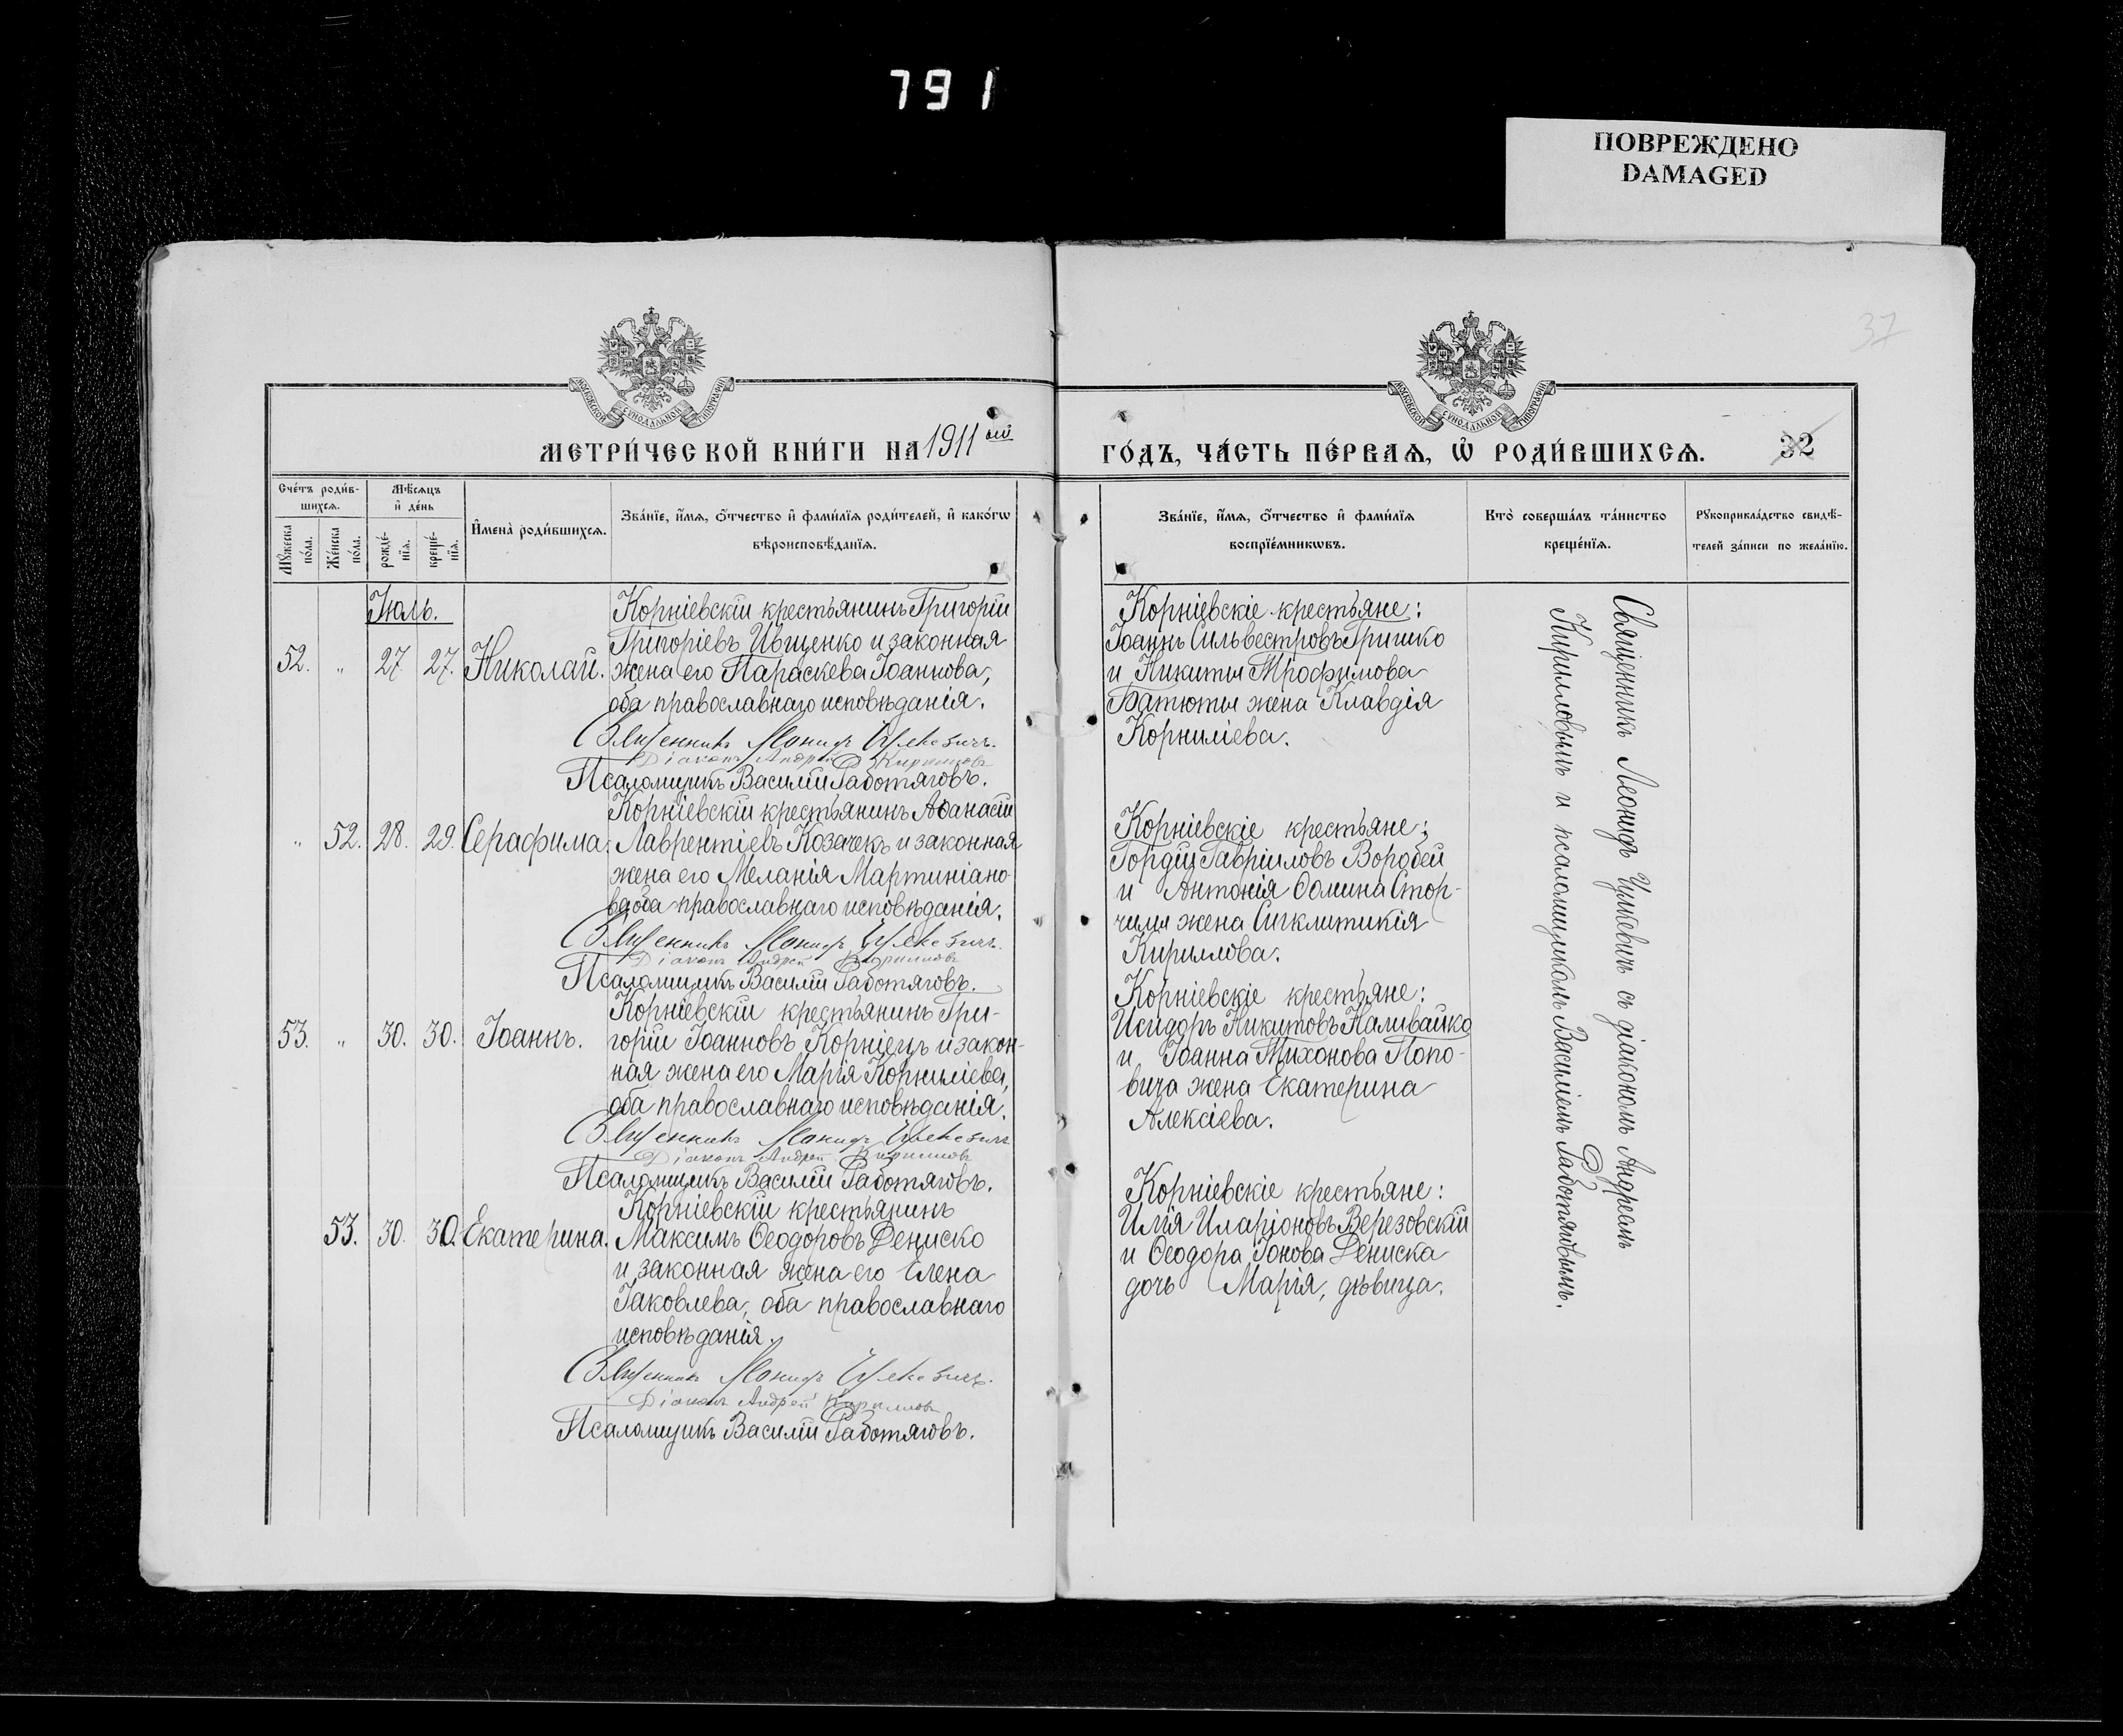 791
ПОВРЕЖДЕНО
DAMAGED
37
МОСКОВСКОЙ СѴНОДАЛЬНОЙ ТИПОГРАФІИ
МОСКОВСКОЙ СѴНОДАЛЬНОЙ ТИПОГРАФІИ
МЕТРИ́ЧЕСКОЙ КНИ́ГИ НА 1911ый ГО́ДЪ, ЧА́СТЬ ПЕ́РВАѦ, Ѡ҆ РОДИ́ВШИХСѦ. 32
Сче́тъ роди́в-
шихсѧ.
Мꙋ́жеска по́ла.
Же́нска по́ла.
Мѣ́сѧцъ
и҆ де́нь
рожде́-
нїѧ.
креще́-
нїѧ.
И҆мена̀ роди́вшихсѧ.
Зва́нїе, и҆́мѧ, ѻ҆́тчество и҆ фами́лїѧ роди́телей, и҆ како́гѡ
вѣроисповѣ́данїѧ.
Зва́нїе, и҆́мѧ, ѻ҆́тчество и҆ фами́лїѧ
воспрїе́мникѡвъ.
Кто̀ соверша́лъ та́инство
креще́нїѧ.
Рꙋкоприкла́дство свидѣ́-
телей за́писи по жела́нїю.
Іюль.
52. " 27. 27. Николай.
Корніевскій крестьянинъ Григорій
Григоріевъ Ивщенко и законная
жена его Параскева Іоаннова,
оба православнаго исповѣданія.
Священникъ Леонидъ Цулкевичъ.
Діаконъ Андрей Кирилловъ
Псаломщикъ Василій Работяговъ.
Корніевскіе крестьяне:
Іоаннъ Сильвестровъ Гришко
и Никиты Трофимова
Батюты жена Клавдія
Корниліева.
" 52. 28. 29. Серафима.
Корніевскій крестьянинъ Аѳанасій
Лаврентіевъ Козачекъ и законная
жена его Меланія Мартиніано-
ва оба православнаго исповѣданія.
Священникъ Леонидъ Цулкевичъ.
Діаконъ Андрей Кирилловъ
Псаломщикъ Василій Работяговъ.
Корніевскіе крестьяне:
Гордій Гавріиловъ Воробей
и Антонія Ѳомина Стор-
чилы жена Сигклитикія
Кириллова.
53. " 30. 30. Іоаннъ.
Корніевскій крестьянинъ Гри-
горій Іоанновъ Корніецъ и закон-
ная жена его Марія Корниліева,
оба православнаго исповѣданія.
Священникъ Леонидъ Цулкевичъ
Діаконъ Андрей Кирилловъ
Псаломщикъ Василій Работяговъ.
Корніевскіе крестьяне:
Исидоръ Никитовъ Наливайко
и Іоанна Тихонова Попо-
вича жена Екатерина
Алексіева.
53. 30. 30. Екатерина.
Корніевскій крестьянинъ
Максимъ Ѳеодоровъ Дениско
и законная жена его Елена
Іаковлева, оба православнаго
исповѣданія.
Священникъ Леонидъ Цулкевичъ.
Діаконъ Андрей Кирилловъ
Псаломщикъ Василій Работяговъ.
Корніевскіе крестьяне:
Илія Иларіоновъ Верезовскій
и Ѳеодора Іонова Дениска
дочь Марія, дѣвица.
Священникъ Леонидъ Цулкевичъ съ діакономъ Андреемъ
Кирилловымъ и псаломщикомъ Василіемъ Работяговымъ.